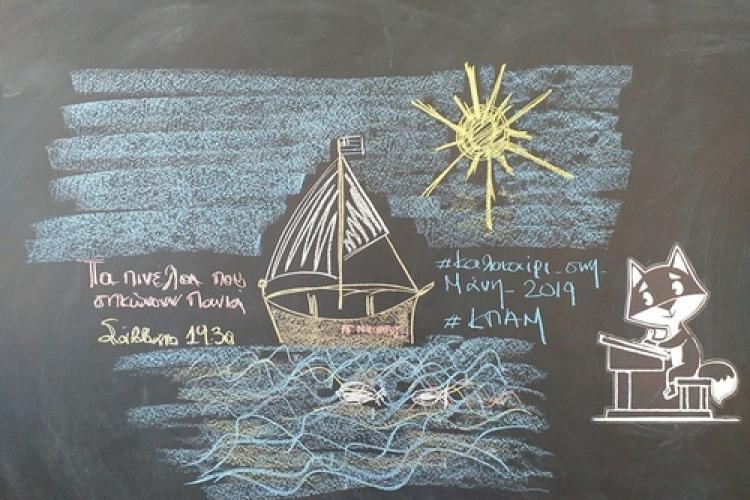 Τα πινέλα που
σηκώνουν Πανιά
Σάββατο 19.30
#καλοκαίρι_στη_
Μάνη_2019
#ΚΠΑΜ